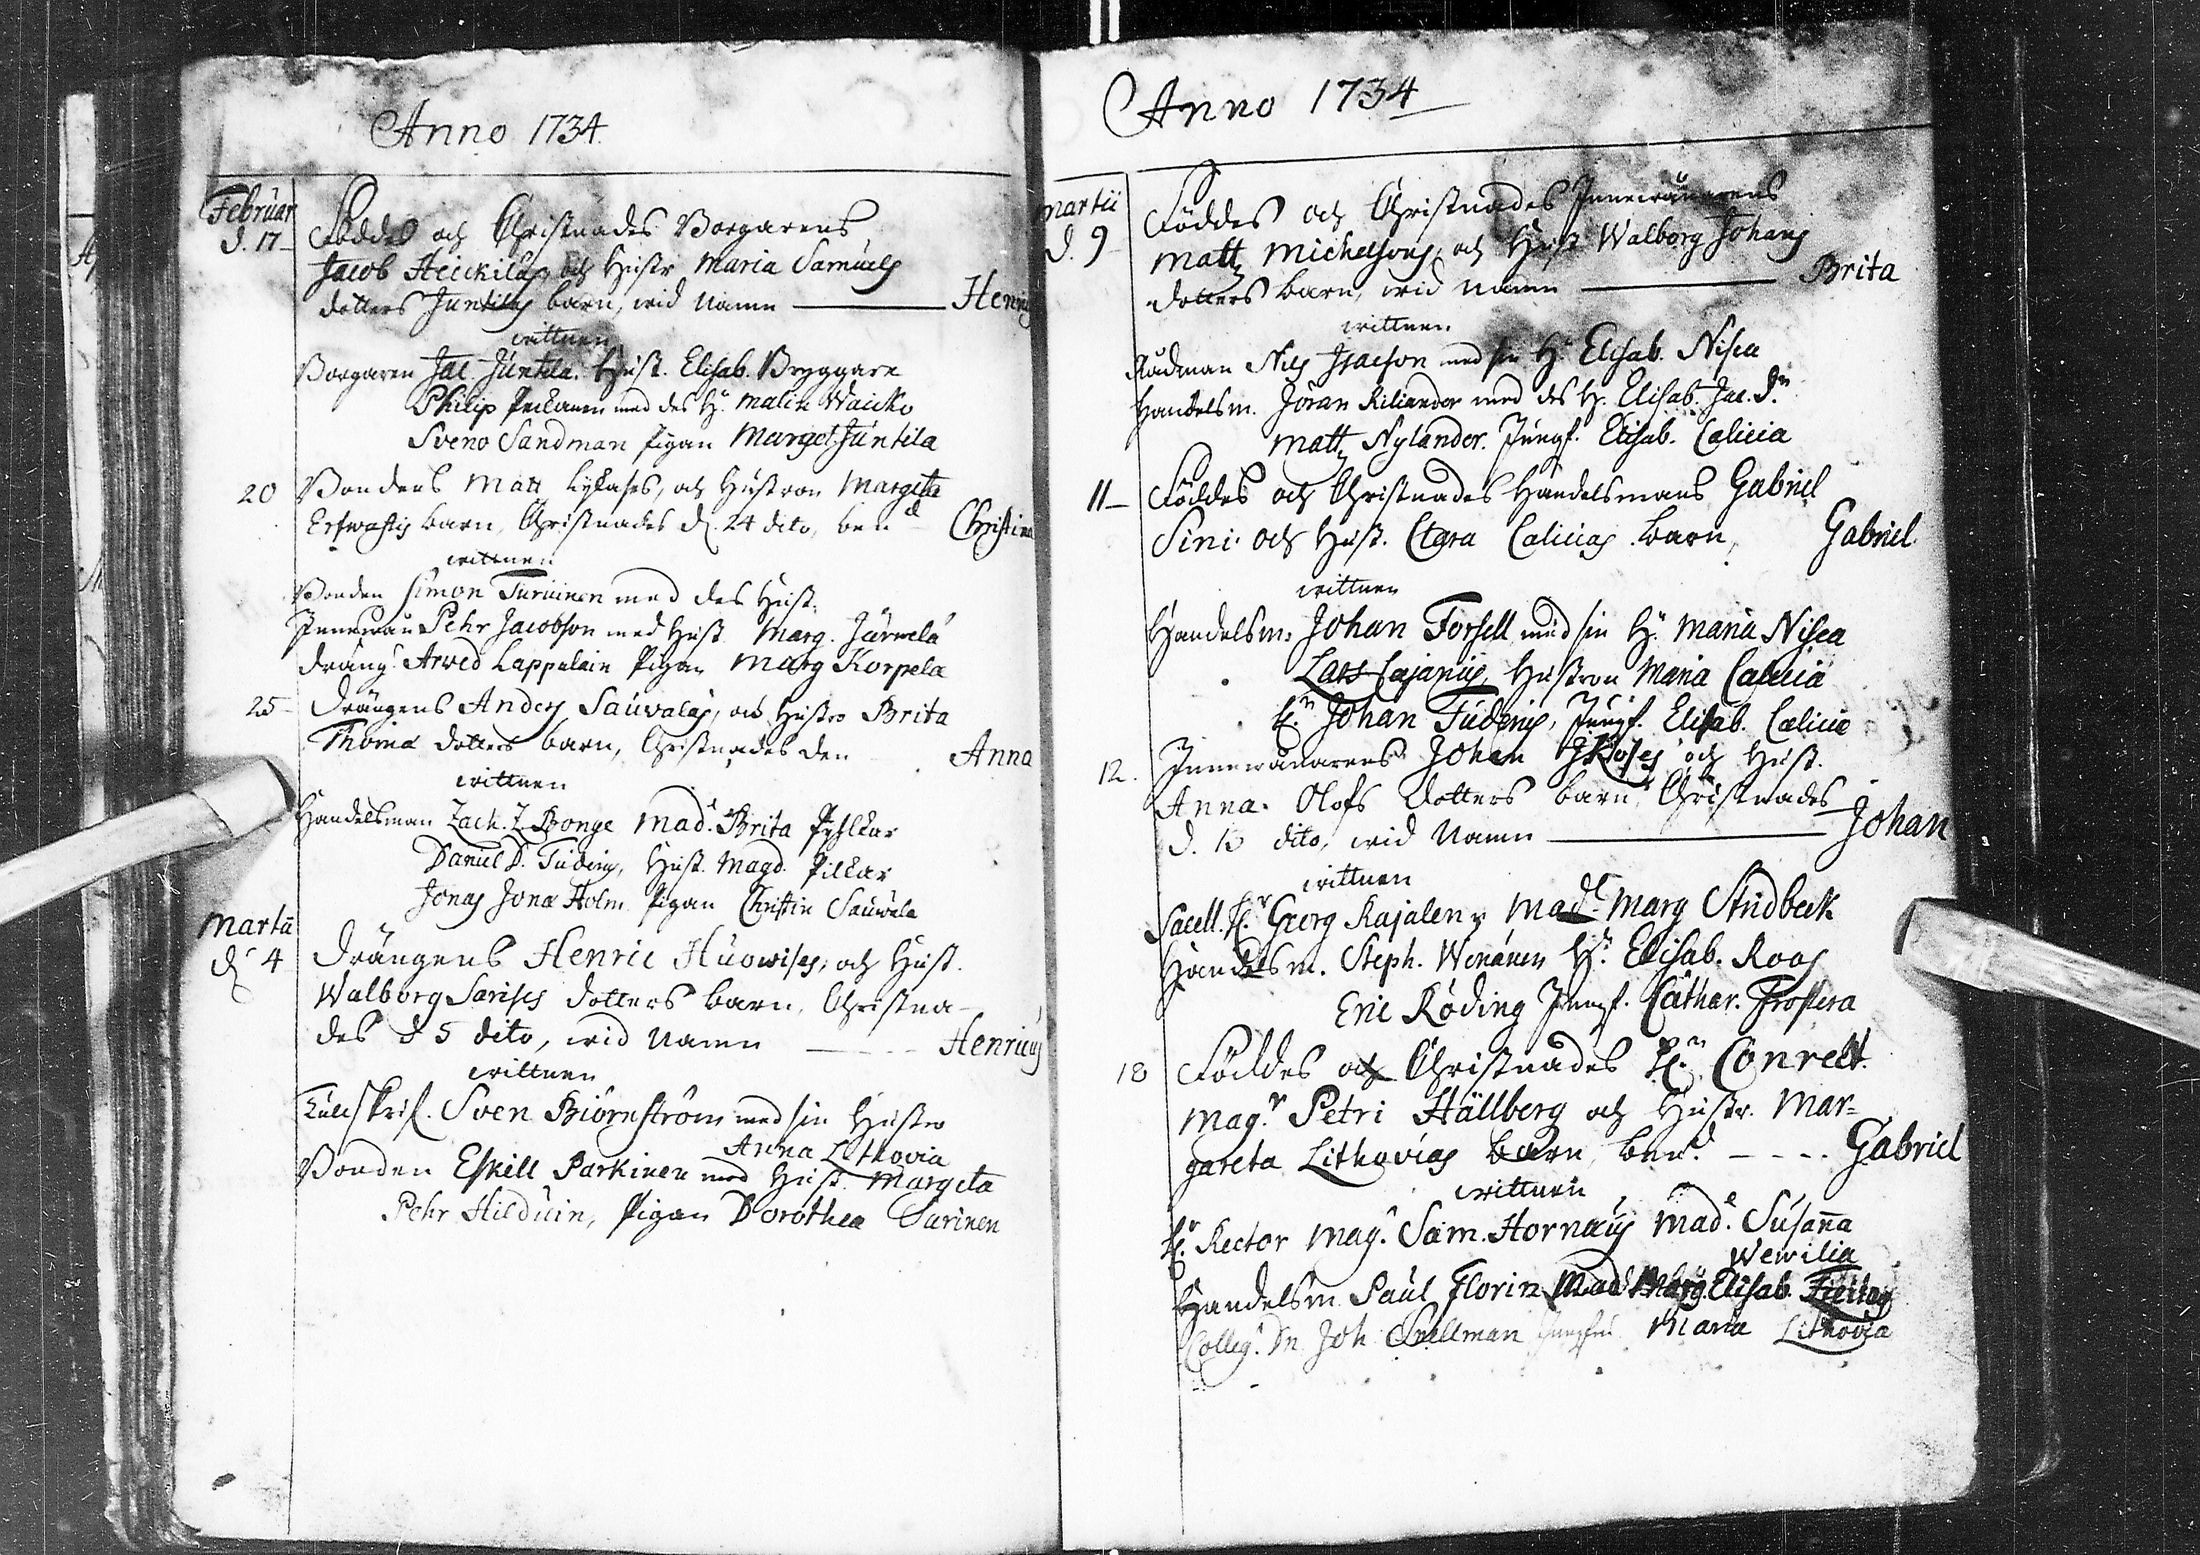 Anno 1734
Februar
d. 17 Föddes och Christnades Borgarens
Jacob Heickilas och Hustr Maria Samuels
dotters Juntilas barn, wid Namn — Henric
wittnen
Borgaren Jac. Juntila. Hust. Elisab. Bryggare
Philip med des H. Malin Waicko
Sveno Sandman Pigan Marget Juntila
20 Bondens Matt Lykases, och Hustron Margeta
barn, Christnades d. 24 dito, ben:d Christina
wittnen
Bonden Simon Turuinen med des Hust.
Pehr Jacobson med Hust. Marg. Järwelä
dräng Arwed Lappalain Pigan Marg Korpela
25 Drängens Anders Sauvalas, och Hustro Brita
Thomæ dotters barn, Christnades den Anna
wittnen
Handelsman Zach. Z. Bonge Mad. Brita
Daniel D. Tuderus, Hust. Magd. Pilkar
Jonas Jonæ Holm Pigan Christin Sauwala
Martii
d. 4 Drängens Henric Huowises, och Hust.
Walborg Sarises dotters barn, Christna-
des d 5 dito, wid Namn — Henricus
wittnen
Sven Biörnström med sin Hustro
Anna Lithovia
Bonden Eskill Parkinen med Hust. Margeta
Pehr Hilduin, Pigan Dorothea Surinen
Anno 1734
Martii
d. 9 Föddes och Christnades
Matts Michelsons, och Hust. Walborg Johans
dotters barn, wid Namn — Brita
wittnen
Rådman Nils Isacson med sin H. Elisab. Nisca
Handelsm. Jöran Kiliander med des H. Elisab. Jac. D.
Matts Nylander. Jungf. Elisab. Calicia
11 Föddes och Christnades Handelsmans Gabriel
Sini och Hust. Clara Calicias barn, Gabriel
wittnen
Handelsm. Johan Forsell med sin H. Maria Nisca
Lars Cajanus, Hustron Maria Calicia
H.n Johan Tuderus, Jungf. Elisab. Calicie
12. Johan och Hust.
Anna Olofs dotters barn, Christnades
d. 13 dito, wid Namn — Johan
wittnen
Sacell. H.r Georg Kajalen, Mad. Marg Studbeck
Handelsm. Steph. Wenänen H. Elisab. Roos
Eric Röding Jungf. Cathar. Frostera
18 Föddes och Christnades H.n Conrect.
Mag.r Petri Hällberg och Hustr. Mar=
gareta Lithovias barn, ben.d — Gabriel
wittnen
H. Rector Mag. Sam. Hornæus Mad. Susanna
Wewilia
Handelsm Paul Florin Mad. Elisab.
Colleg. Dn. Joh Snellman Jungfru Maria Lithovia